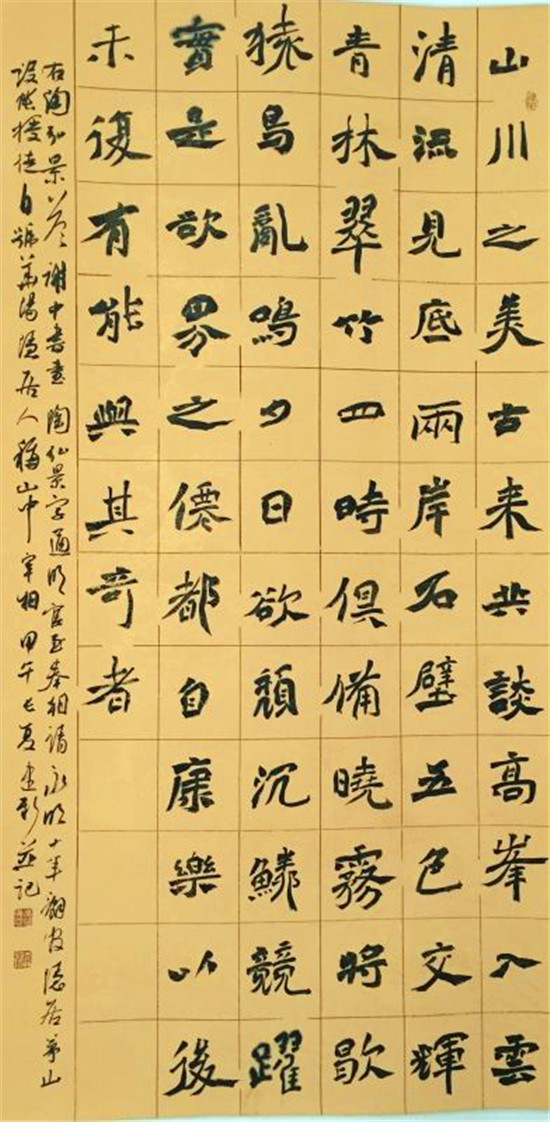 山川之美古来共談高峯入雲
清流見底兩岸石壁五色交輝
青林翠竹四時俱備曉霧將歇
猿鳥亂鳴夕日欲頹沉鱗競躍
實是欲界之僊都自康樂以後
未復有能與其奇者
右陶弘景答謝中書書陶弘景字通明官至奉朝請永明十年辭官隱居茅山
設帳授徒自號華陽隱居人稱山中宰相甲午長夏並記